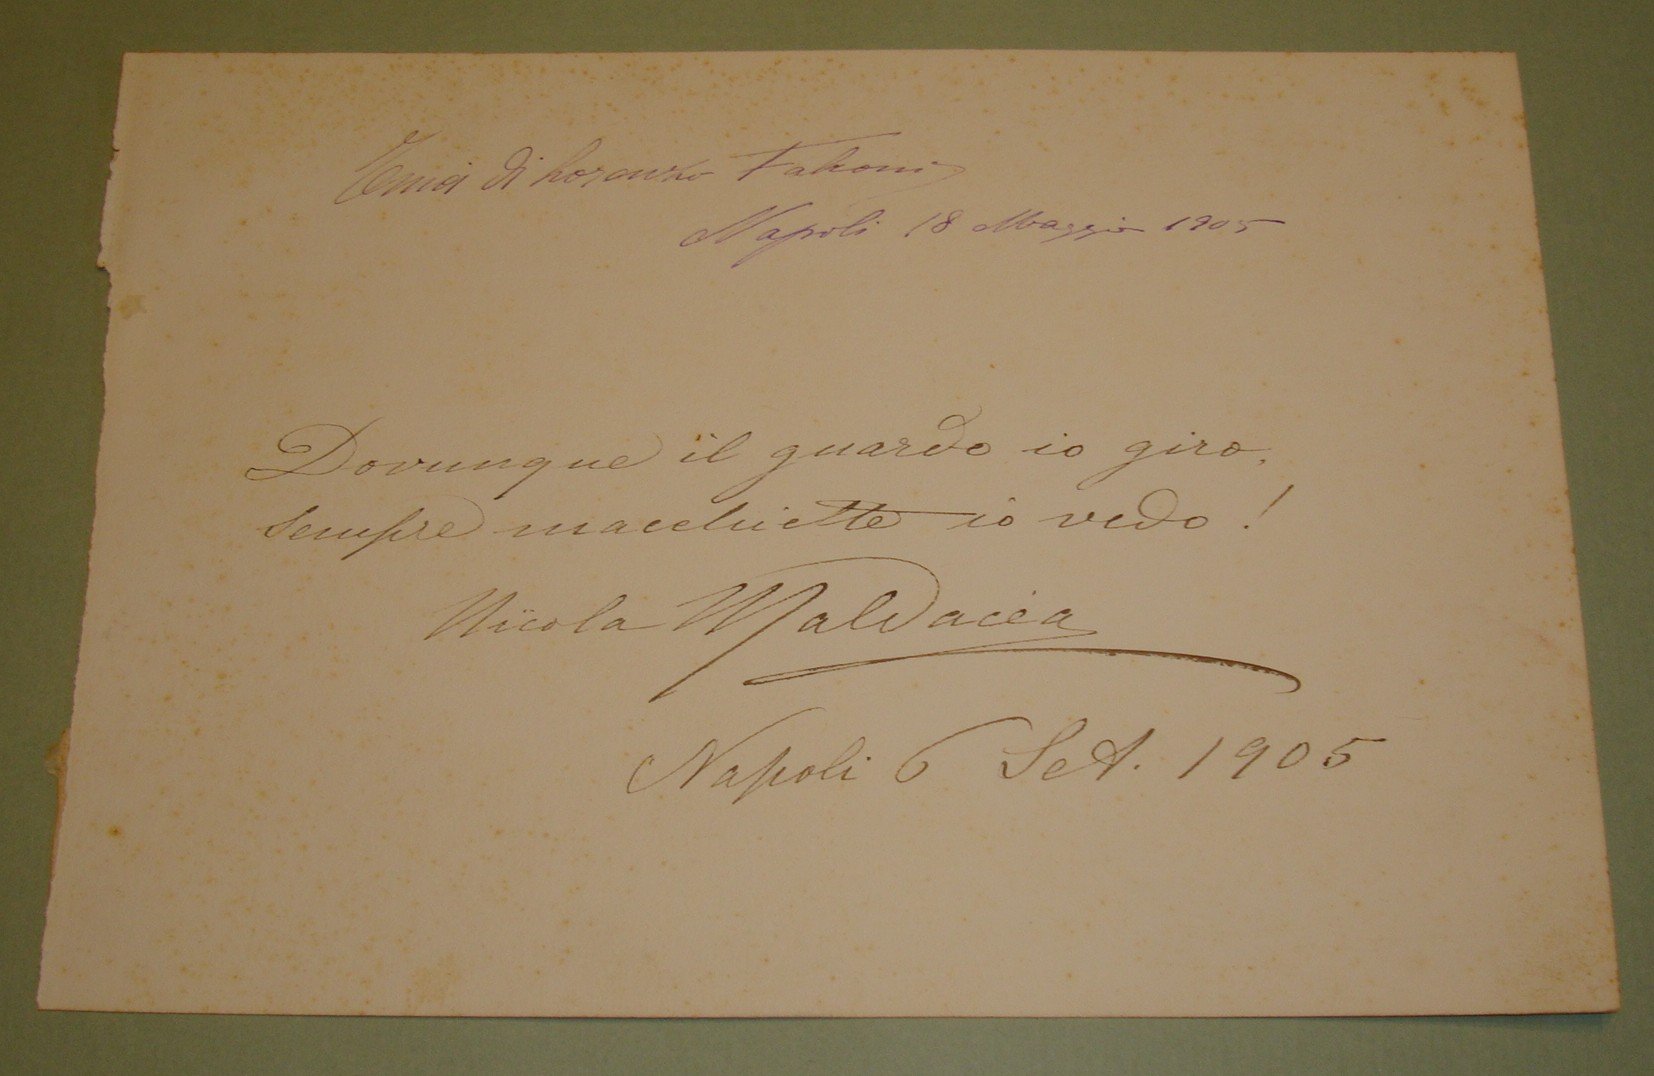 Tina di Lorenzo Falconi
Napoli 18 Maggio 1905
Dovunque il guardo io giro,
sempre macchiette io vedo!
Nicola Maldacea
Napoli 6 Set. 1905